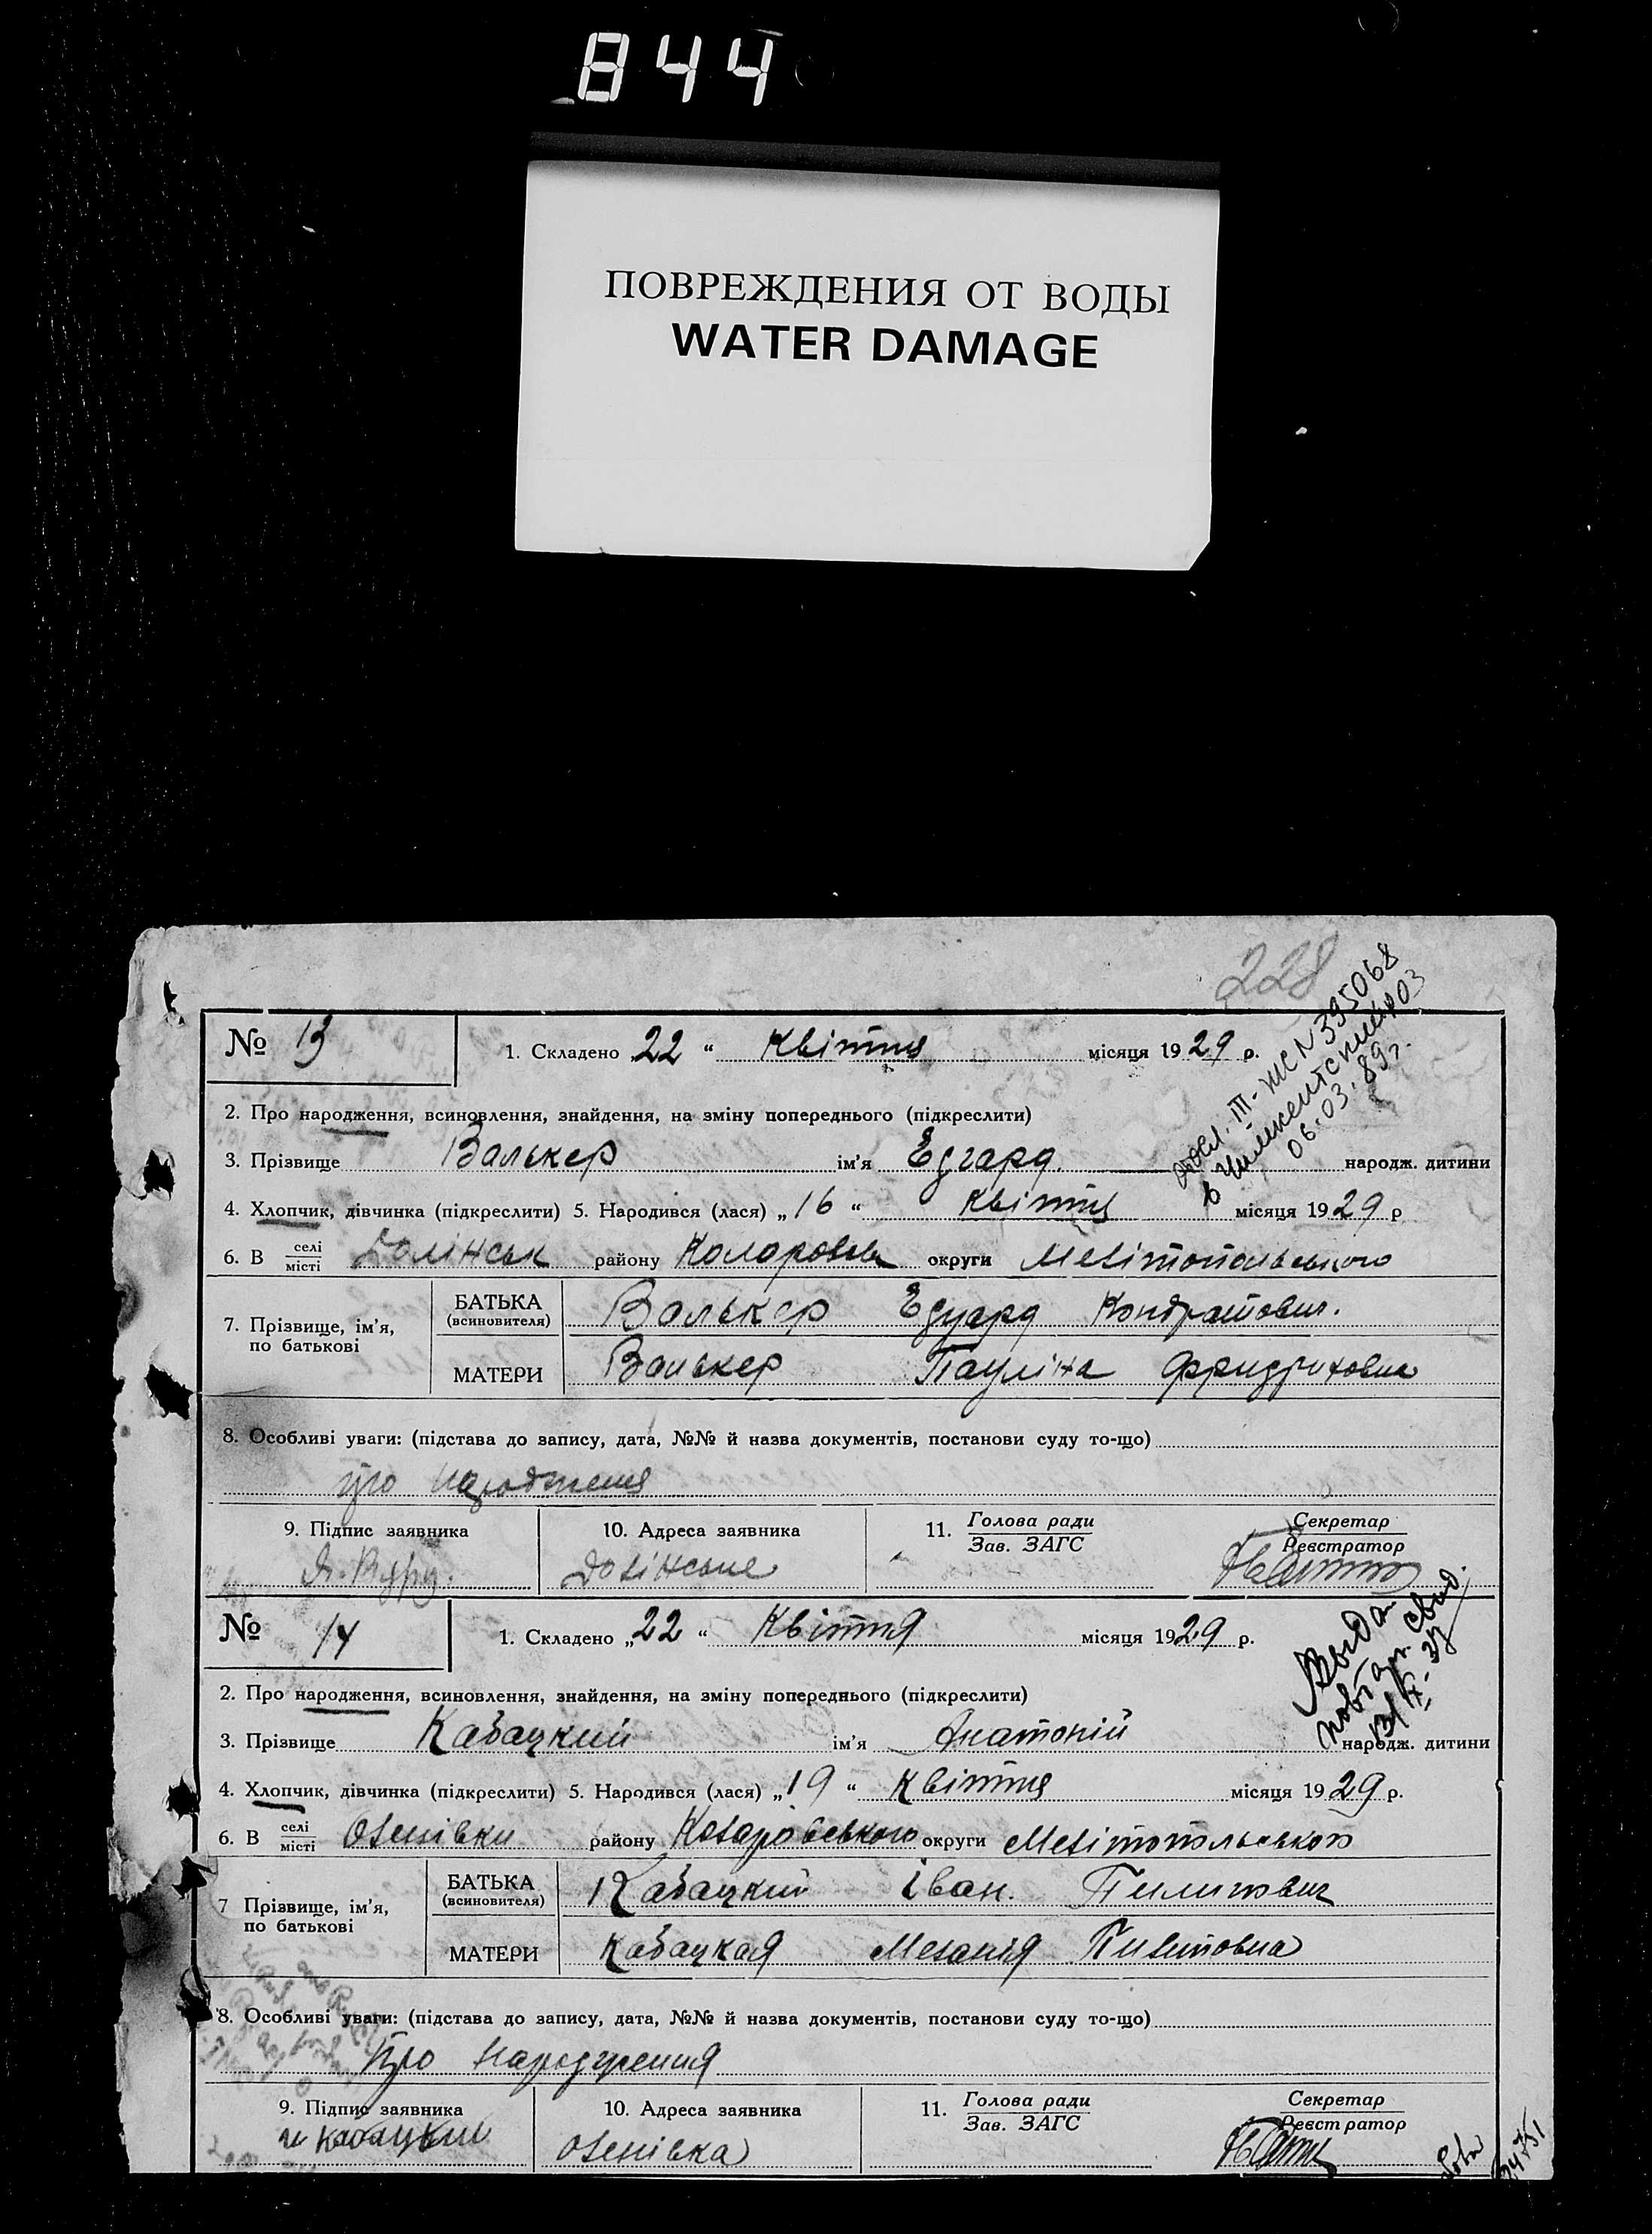 844
ПОВРЕЖДЕНИЯ ОТ ВОДЫ
WATER DAMAGE
228
№ 13 1. Складено 22 “ Квітня місяця 1929 р.
III-ЖС N 395068
в Чимкентский
06.03.89 г.
2. Про народження, всиновлення, знайдення, на зміну попереднього (підкреслити)
3. Прізвище Валькер ім'я Едгард народж. дитини
4. Хлопчик, дівчинка (підкреслити) 5. Народився (лася) „16 “ Квітня місяця 1929 р
6. В селі/місті Долінськ району Коларовськ округи Мелітопольського
7. Прізвище, ім'я, по батькові
БАТЬКА (всиновителя) Валькер Едуард Кондратович.
МАТЕРИ Валькер Пауліна Фридриховна
8. Особливі уваги: (підстава до запису, дата, №№ й назва документів, постанови суду то-що)
про народження
9. Підпис заявника 10. Адреса заявника 11. Голова ради/Зав. ЗАГС Секретар/Реєстратор
Долінське
№ 14 1. Складено „22 “ Квітня місяця 1929 р.
Выдан
повтор. свид.
2. Про народження, всиновлення, знайдення, на зміну попереднього (підкреслити)
3. Прізвище Кабацкий ім'я Анатолій народж. дитини
4. Хлопчик, дівчинка (підкреслити) 5. Народився (лася) „19 “ Квітня місяця 1929 р.
6. В селі/місті Оленівки району Коларовського округи Мелітопольського
7 Прізвище, ім'я, по батькові
БАТЬКА (всиновителя) Кабацкий Іван. Пилипович
МАТЕРИ Кабацкая Меланія Пилиповна
8. Особливі уваги: (підстава до запису, дата, №№ й назва документів, постанови суду то-що)
Про народження
9. Підпис заявника 10. Адреса заявника 11. Голова ради/Зав. ЗАГС Секретар/Реєстратор
и Кабацкий Оленівка